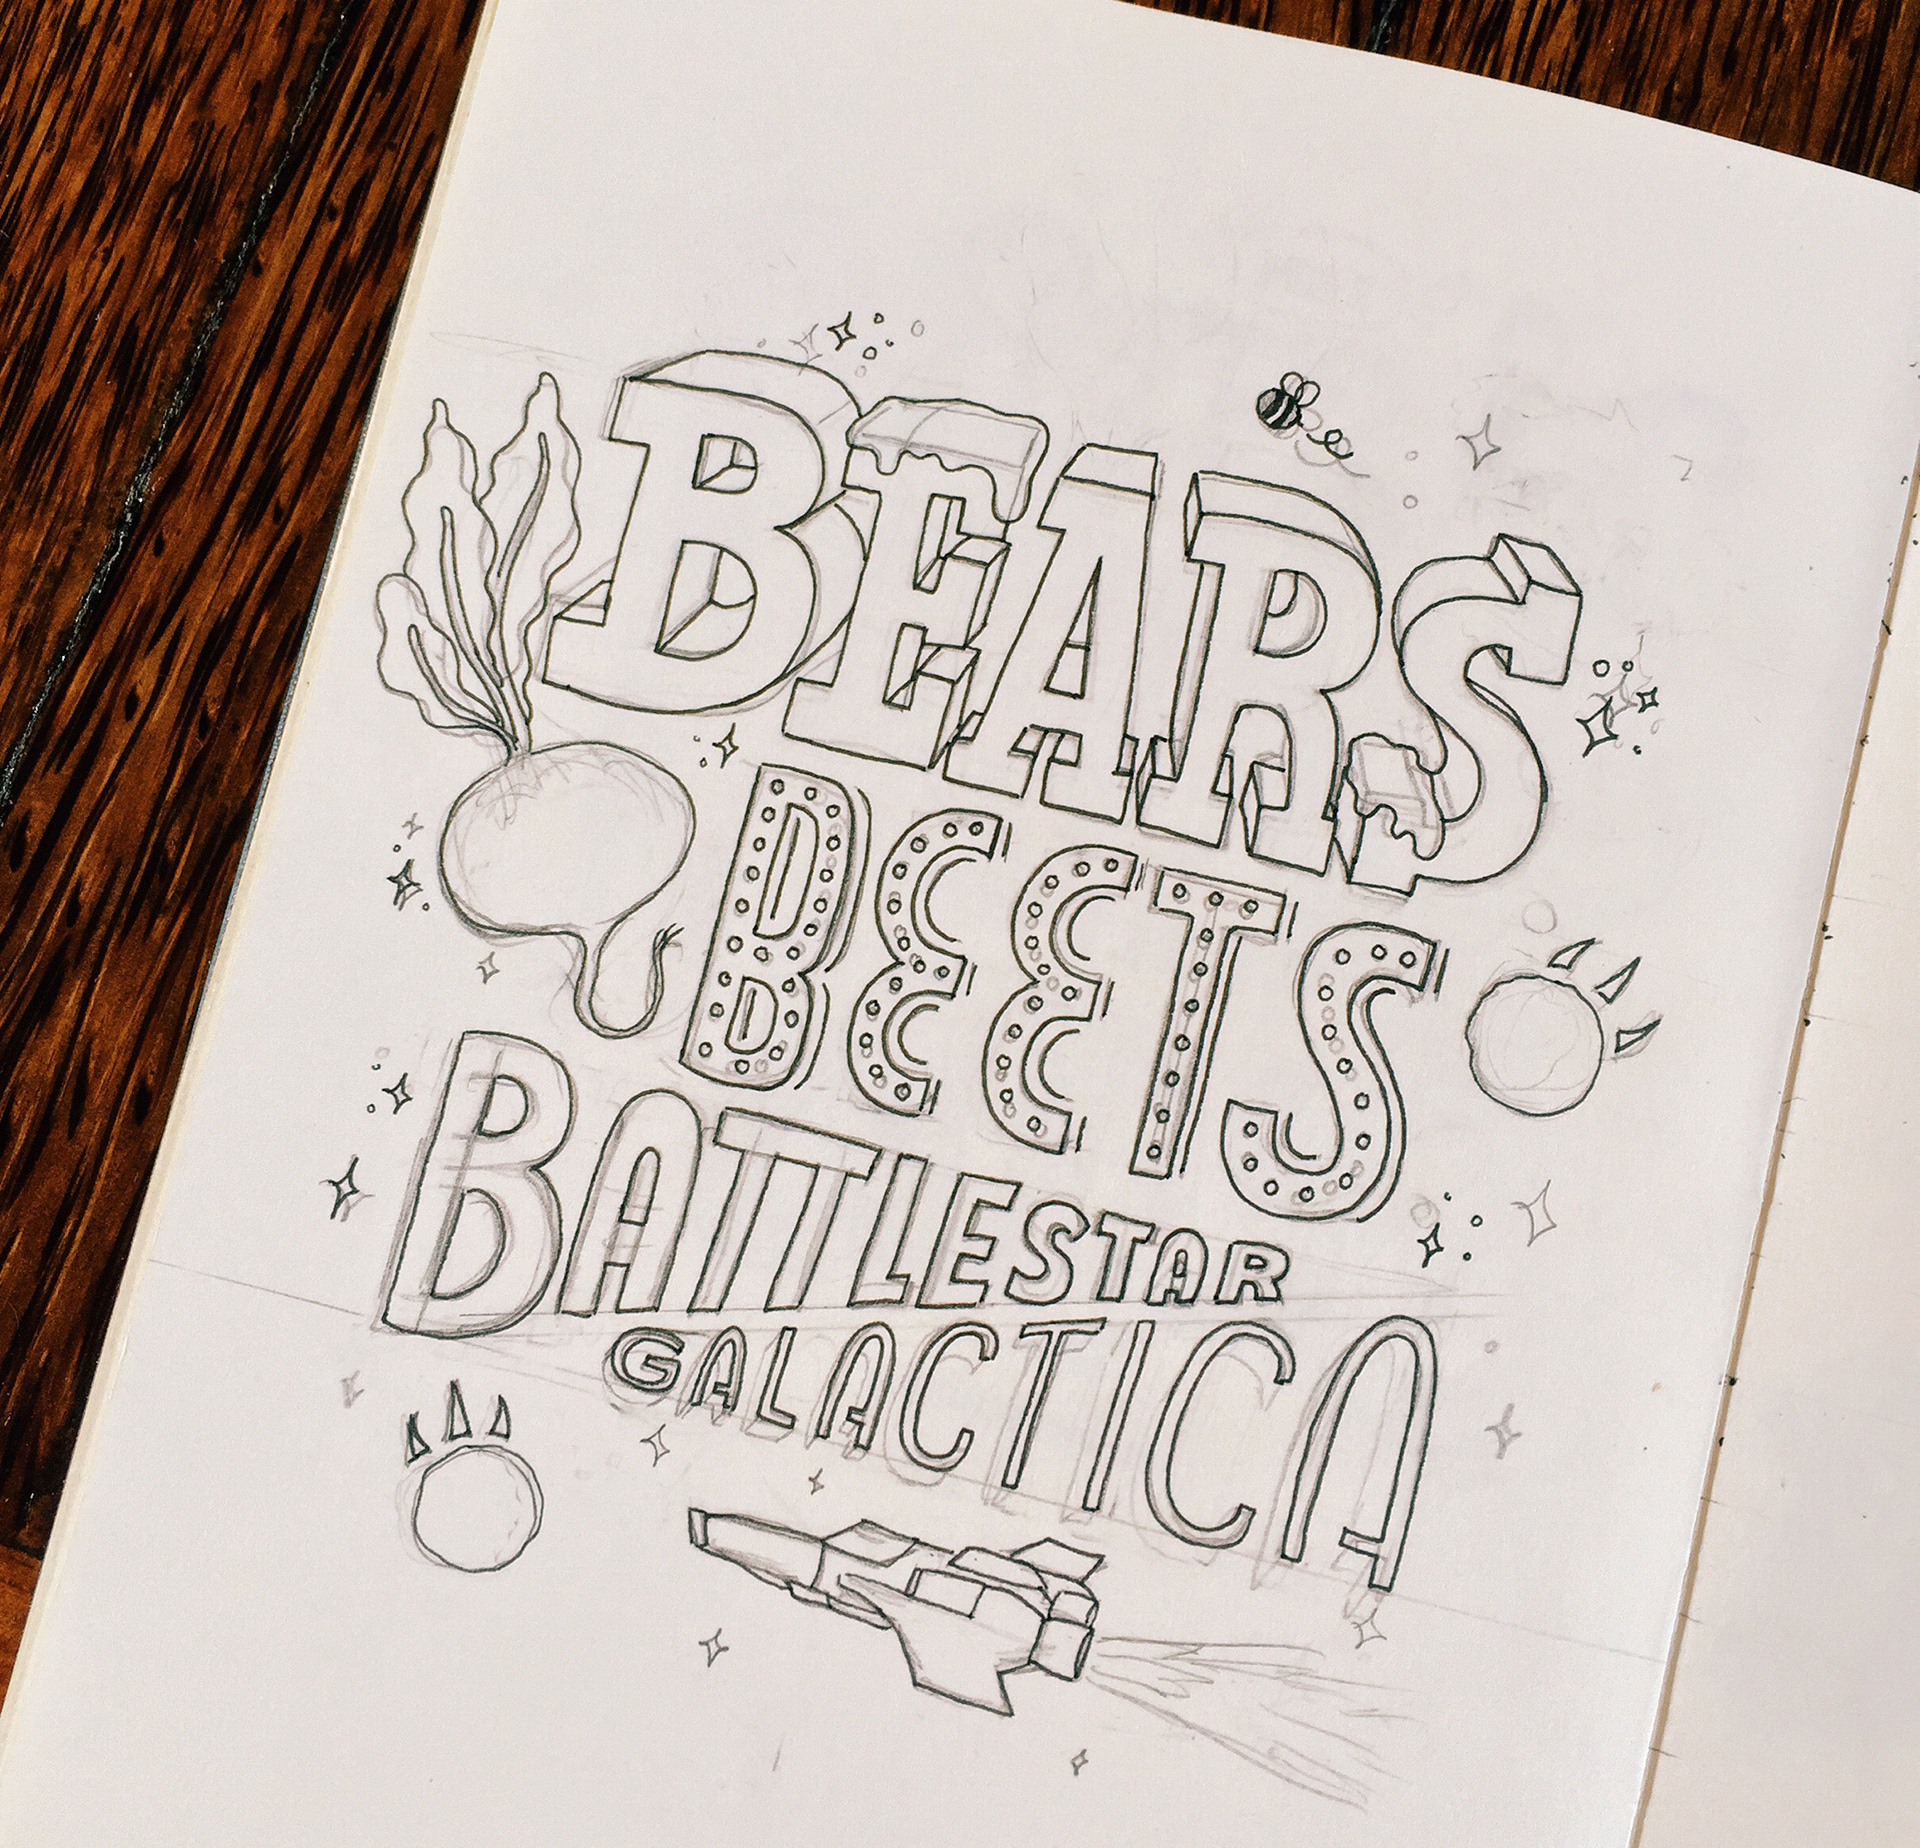 BEARS
BEETS
BATTLESTAR
GALACTICA